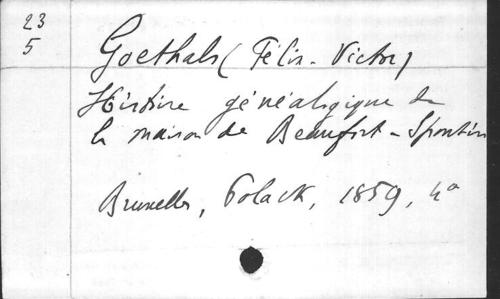 23
5
Goethals (Félix-Victor)
Histoire généalogique de
la maison de Beaufort-Spontin
Bruxelles, Polack, 1859, 4°